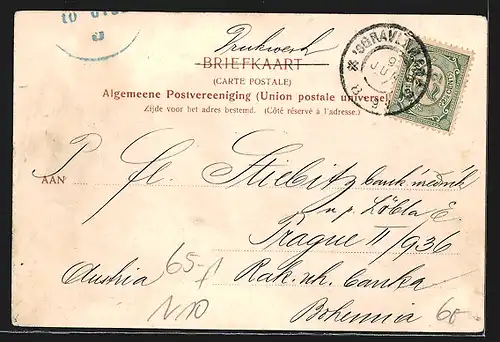 Drukwerk
BRIEFKAART
(CARTE POSTALE)
Algemeene Postvereeniging (Union postale universel
Zijde voor het adres bestemd. (Côté réservé à l'adresse.)
'SGRAVENHA
AAN P. fl. Stiebitz bank. úředník
u p. Löbla E
Prague II/936
Austria 65- Rak. uh. banka
Bohemia 60